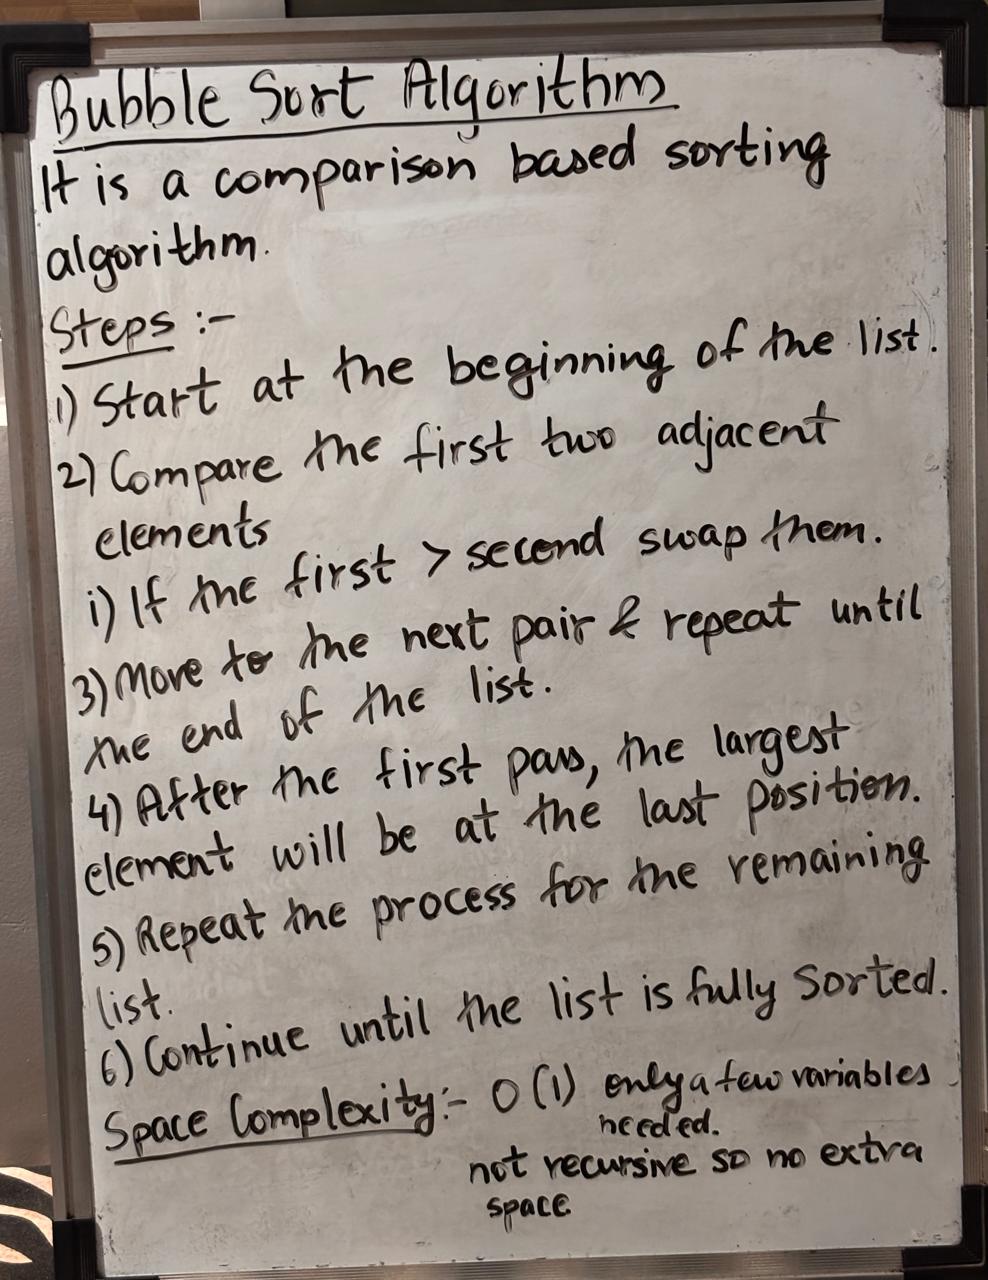 Bubble Sort Algorithm
It is a comparison based sorting
algorithm.
Steps :-
1) Start at the beginning of the list.
2) Compare the first two adjacent
elements
i) If the first > second swap them.
3) Move to the next pair & repeat until
the end of the list.
4) After the first pass, the largest
element will be at the last position.
5) Repeat the process for the remaining
list.
6) Continue until the list is fully Sorted.
Space Complexity:- O(1) only a few variables
needed.
not recursive so no extra
space